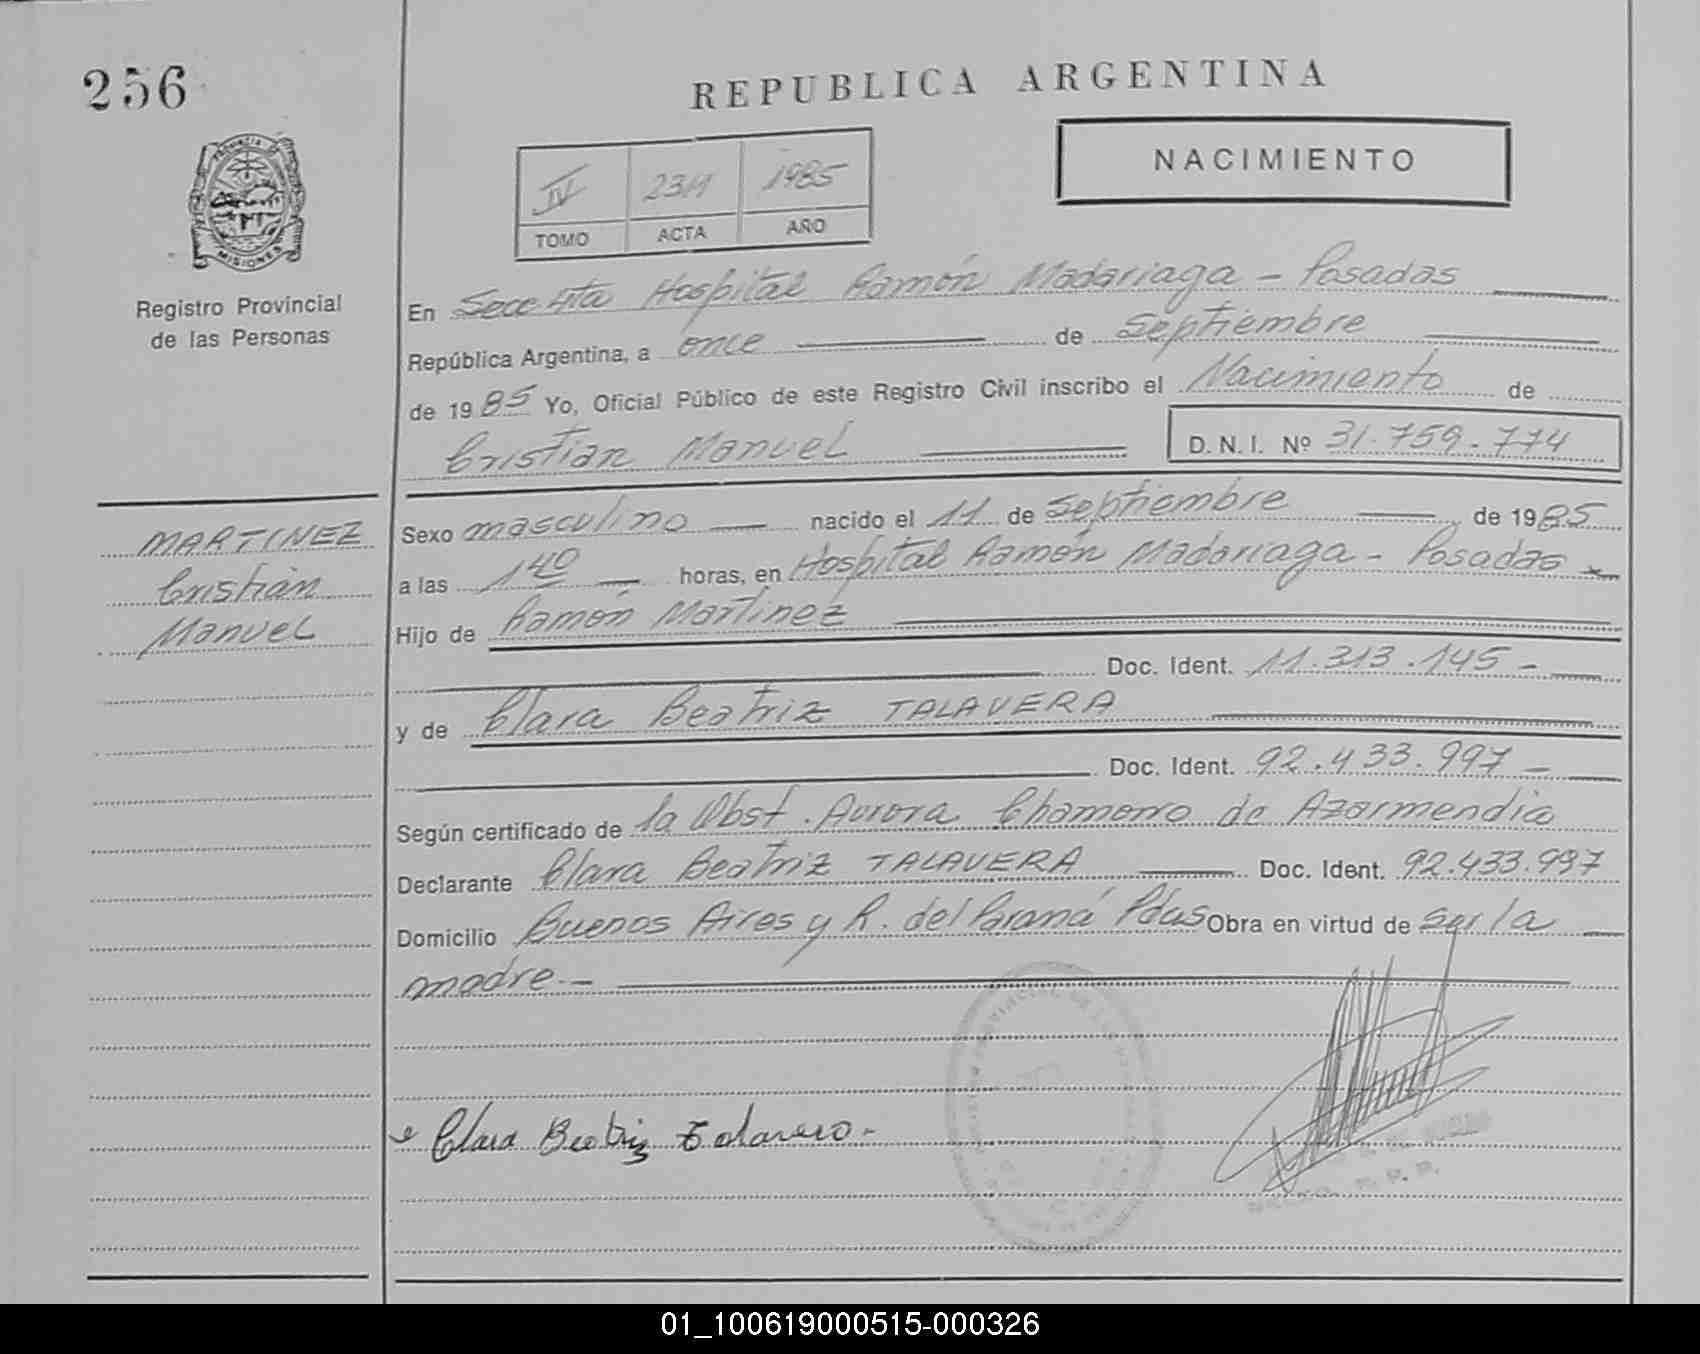 256
REPUBLICA ARGENTINA
NACIMIENTO
IV 1985
TOMO ACTA AÑO
PROVINCIA DE MISIONES
Registro Provincial
de las Personas
En Secc 4ta Hospital Ramón Madariaga - Posadas
República Argentina, a once de Septiembre
de 1985 Yo, Oficial Público de este Registro Civil inscribo el Nacimiento de
Cristian Manuel D. N. I. Nº 31.759.774
MARTINEZ
Cristián
Manuel
Sexo masculino nacido el 11 de Septiembre de 1985
a las 1 40 horas, en Hospital Ramón Madariaga - Posadas
Hijo de Ramón Martinez
Doc. Ident. 11.313.145 -
y de Clara Beatriz TALAVERA
Doc. Ident. 92.433.997 -
Según certificado de la Obst. Aurora Chamorro de Azarmendia
Declarante Clara Beatriz TALAVERA Doc. Ident. 92.433.997
Domicilio Buenos Aires y R. del Paraná Pdas Obra en virtud de ser la
madre.-
Clara Beatriz Talavera.-
01_100619000515-000326